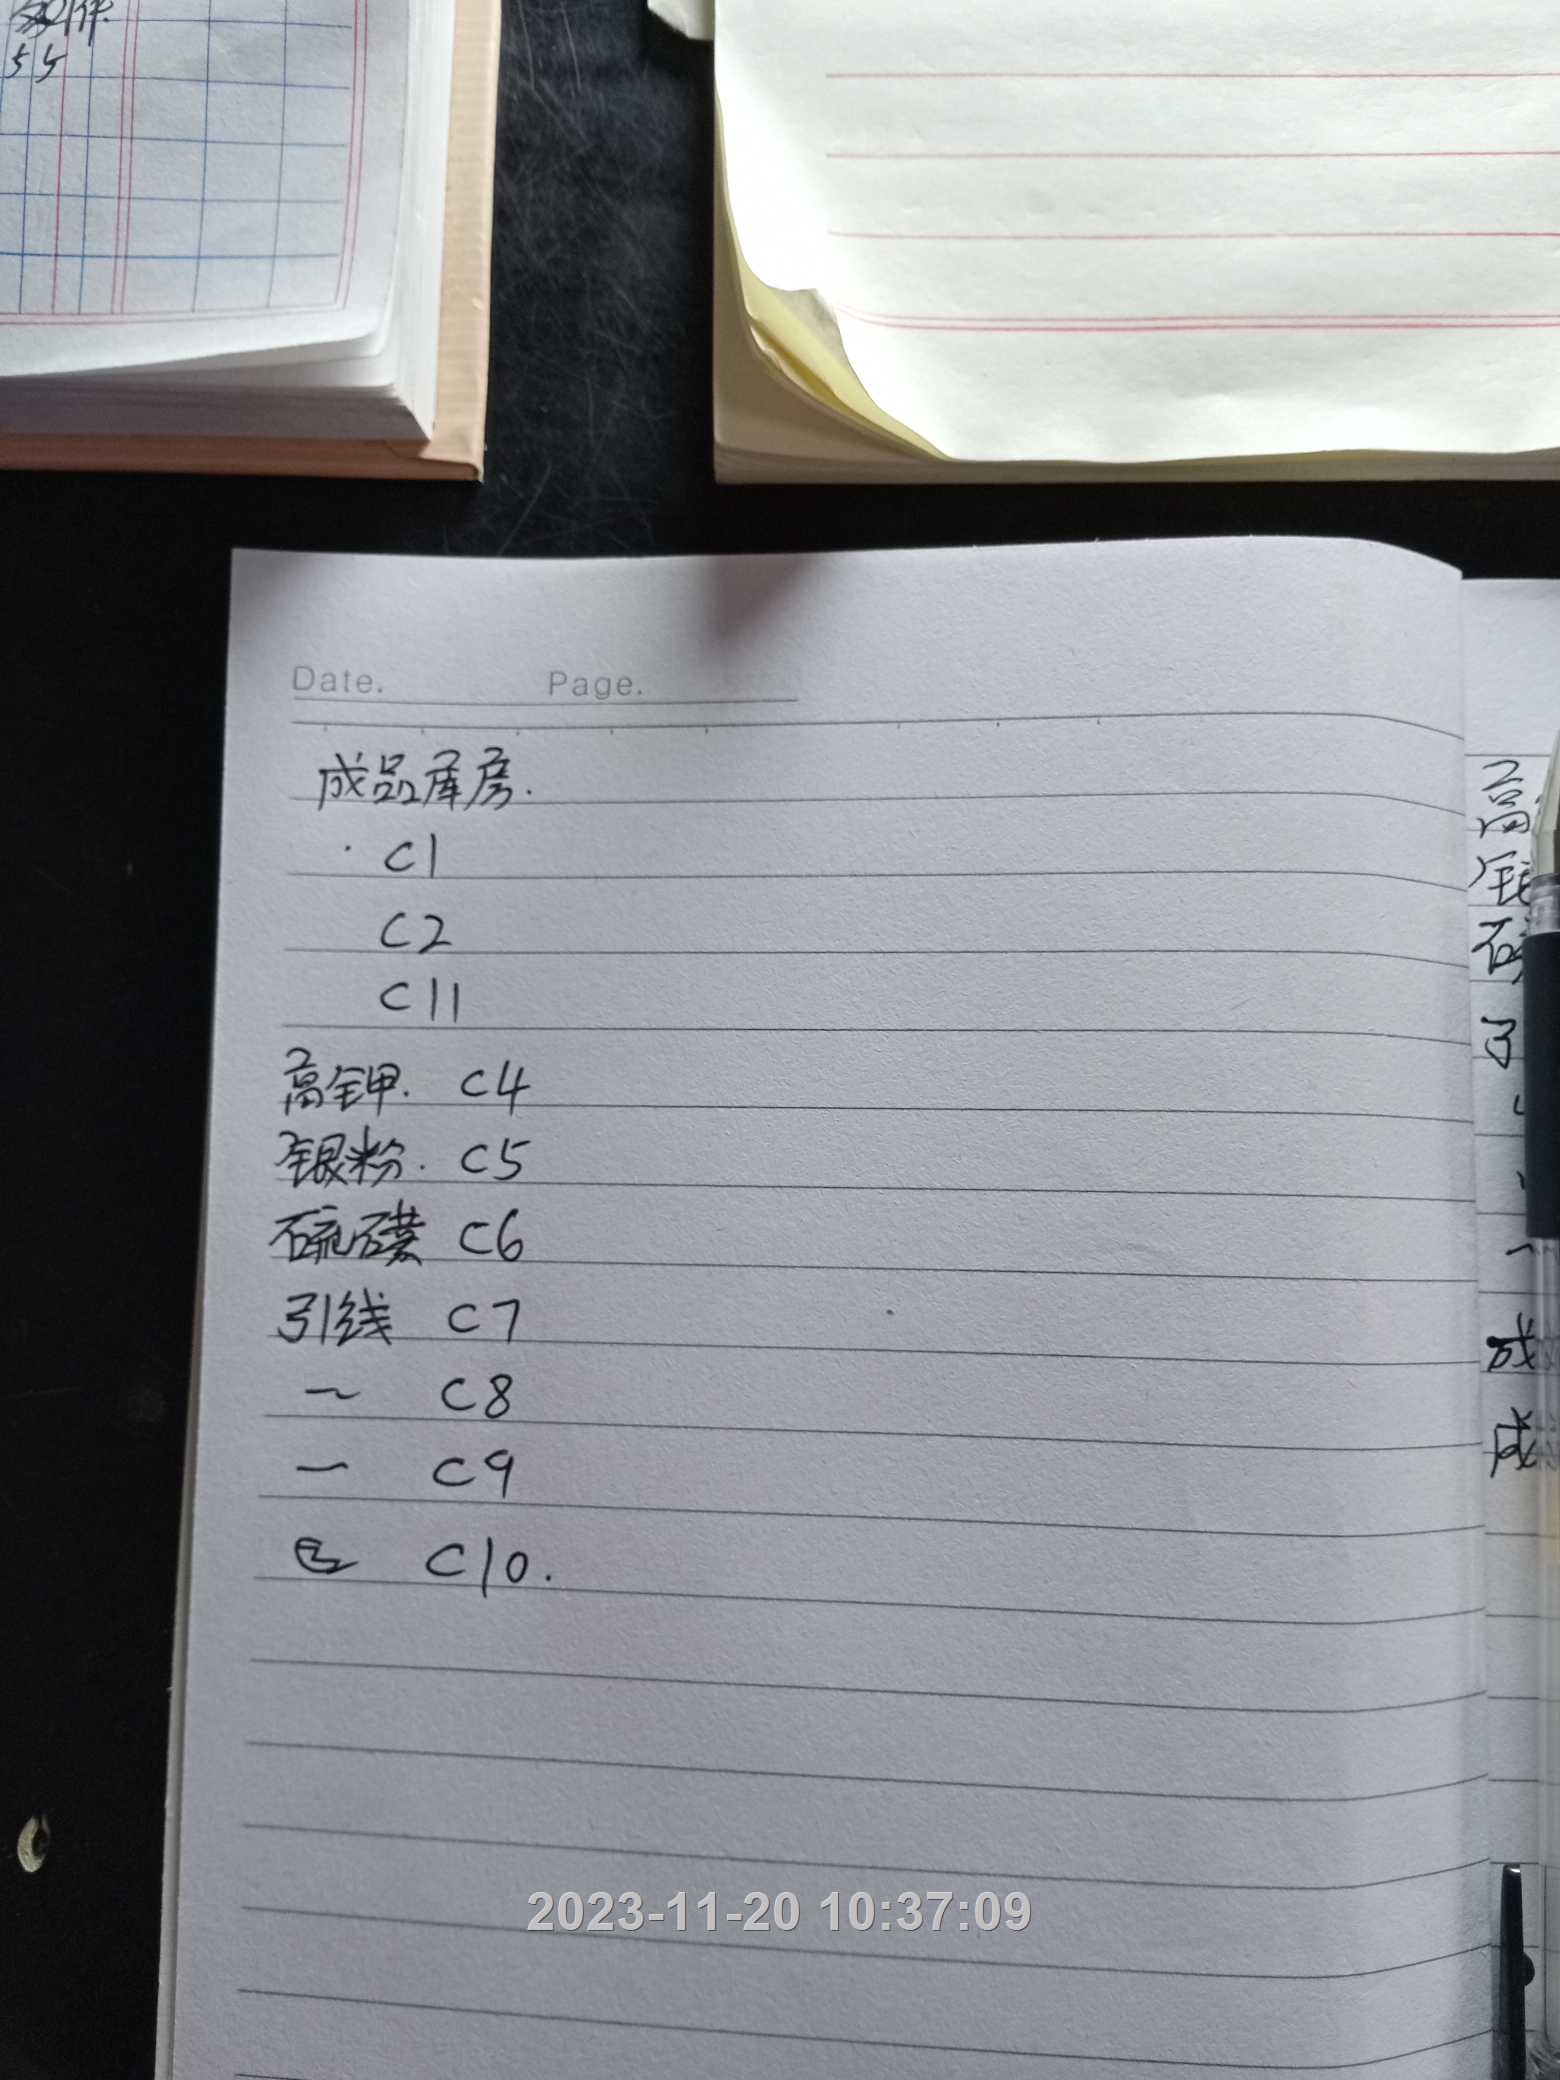 Date. Page.
成品库房.
· C1
C2
C11
高钾. C4
银粉. C5
硫磺 C6
引线 C7
~ C8
~ C9
C10.
高
银
硫
成
成
2023-11-20 10:37:09